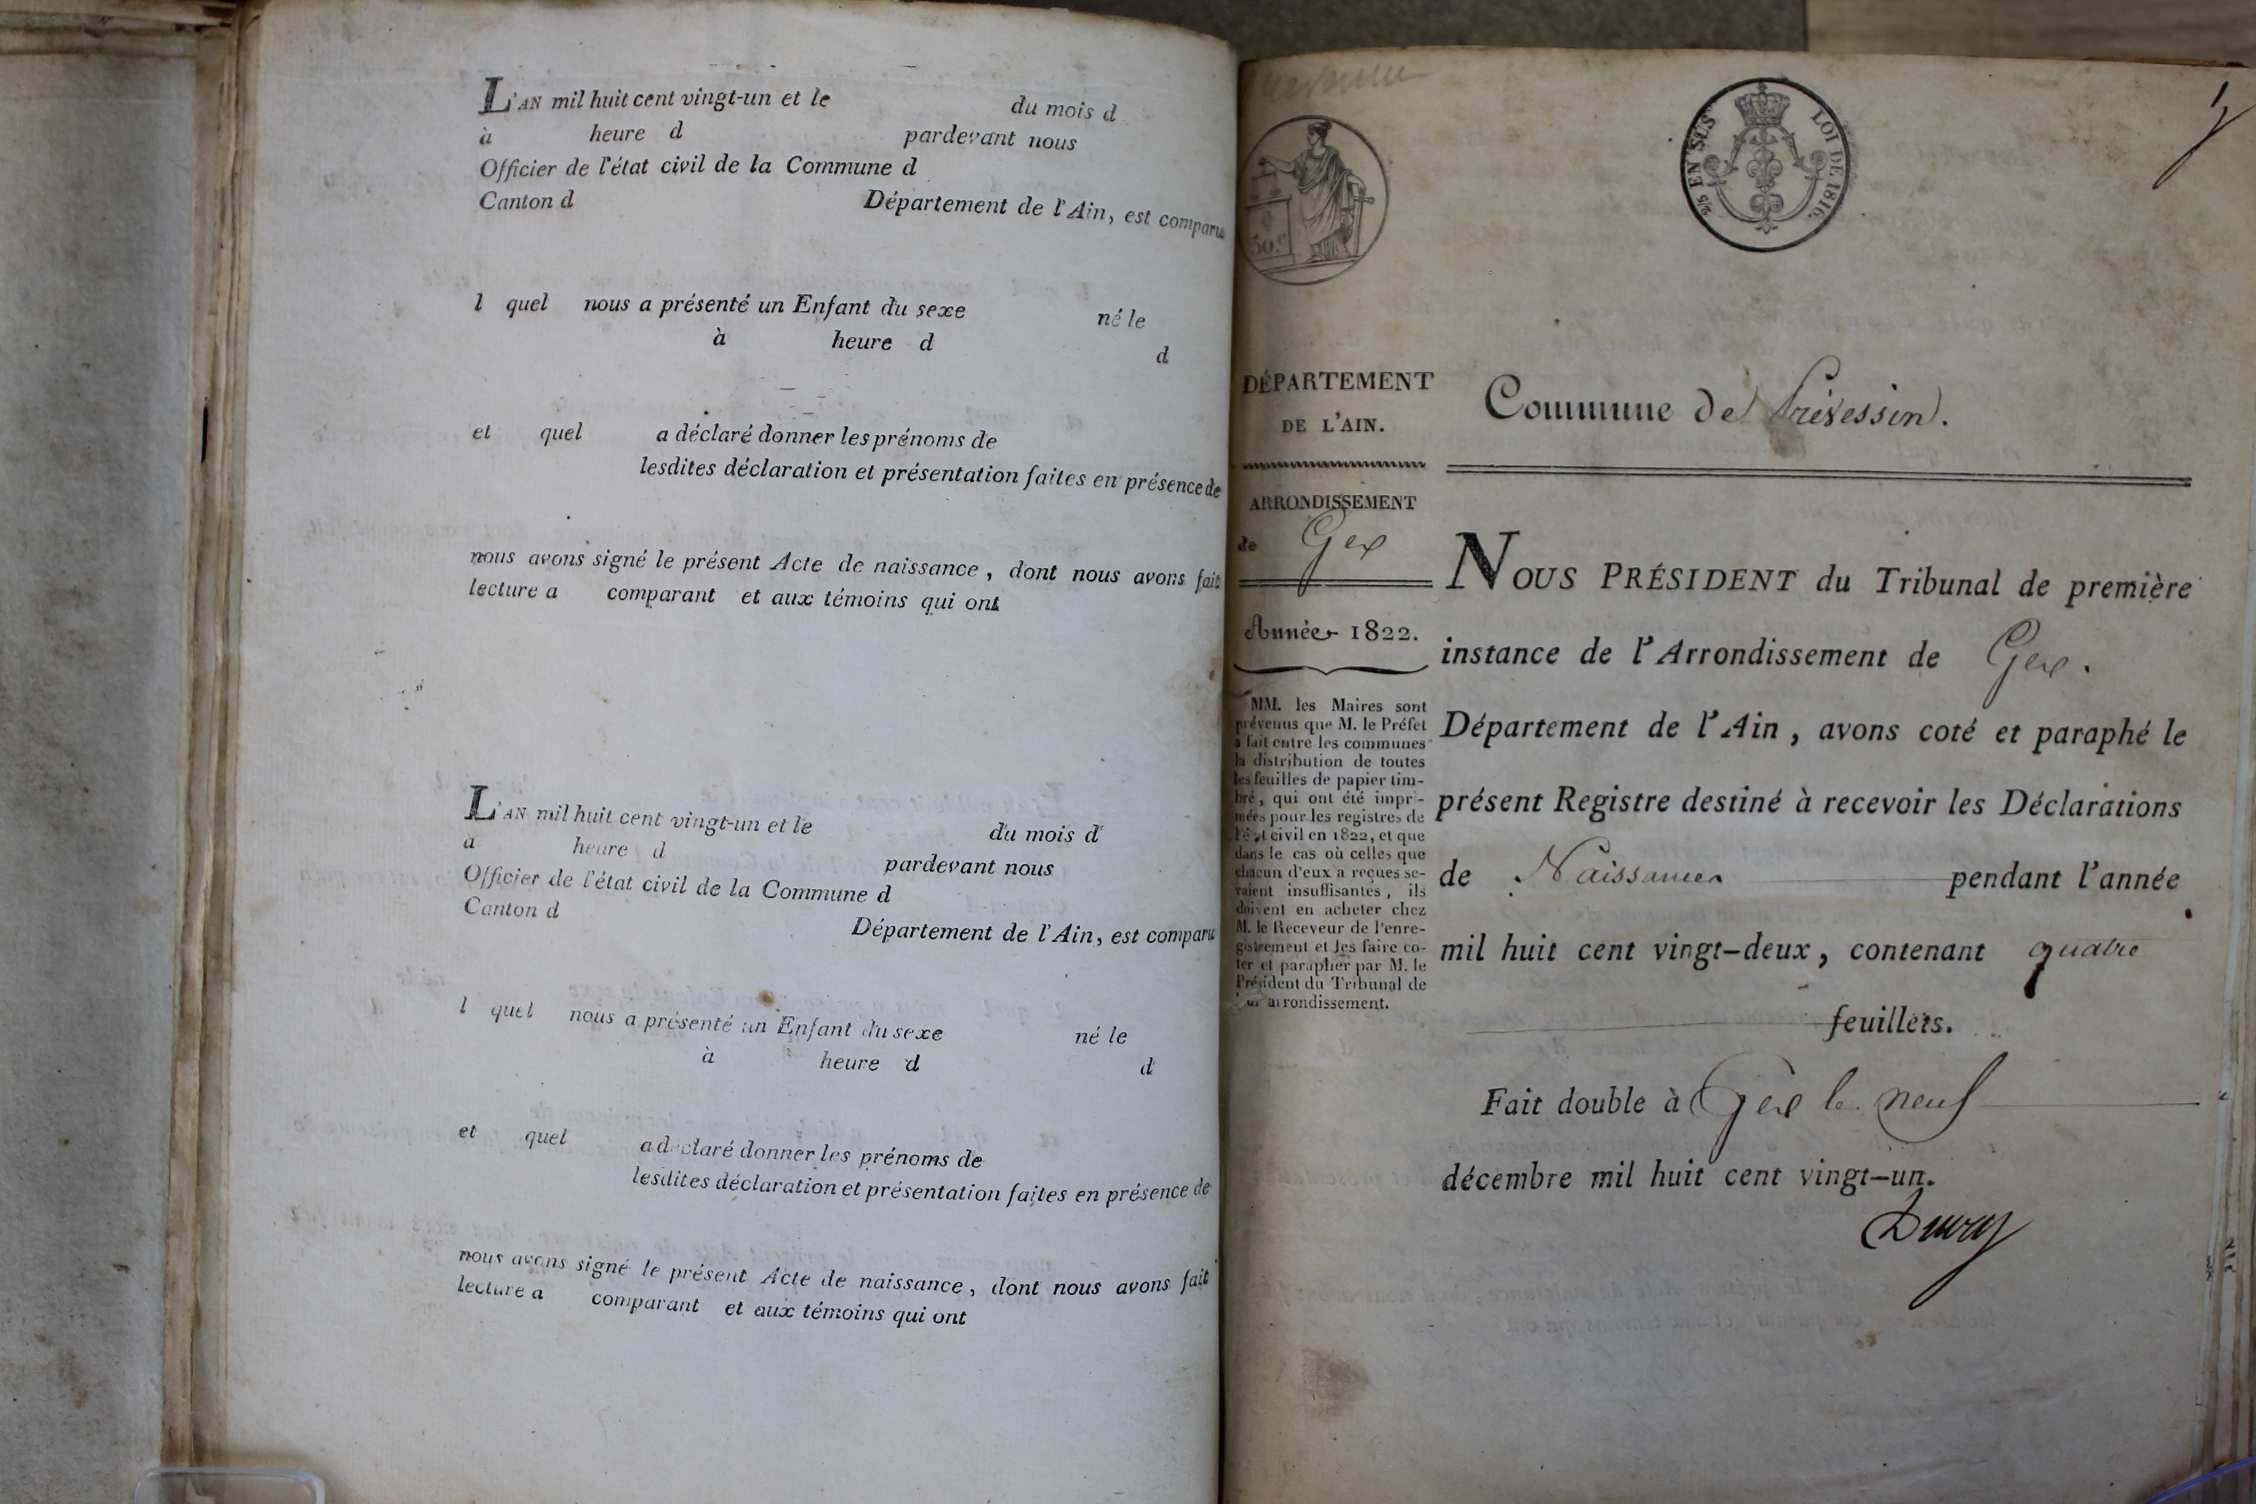 L'AN mil huit cent vingt-un et le du mois d
à heure d pardevant nous
Officier de l'état civil de la Commune d
Canton d Département de l'Ain, est comparu
l quel nous a présenté un Enfant du sexe né le
à heure d d
et quel a déclaré donner les prénoms de
lesdites déclaration et présentation faites en présence de
nous avons signé le présent Acte de naissance, dont nous avons fait
lecture a comparant et aux témoins qui ont
L'AN mil huit cent vingt-un et le du mois d
à heure d pardevant nous
Officier de l'état civil de la Commune d
Canton d Département de l'Ain, est comparu
l quel nous a présenté un Enfant du sexe né le
à heure d d
et quel a déclaré donner les prénoms de
lesdites déclaration et présentation faites en présence de
nous avons signé le présent Acte de naissance, dont nous avons fait
lecture a comparant et aux témoins qui ont
50.c
2/5 EN SUS LOI DE 1816.
1
DÉPARTEMENT
DE L'AIN.
ARRONDISSEMENT
de Gex
Année 1822.
MM. les Maires sont
prévenus que M. le Préfet
a fait entre les communes
la distribution de toutes
les feuilles de papier tim-
bré, qui ont été impri-
mées pour les registres de
l'état civil en 1822, et que
dans le cas où celles que
chacun d'eux a reçues se-
raient insuffisantes, ils
doivent en acheter chez
M. le Receveur de l'enre-
gistrement et les faire co-
ter et parapher par M. le
Président du Tribunal de
arrondissement.
Commune de Prévessin.
NOUS PRÉSIDENT du Tribunal de première
instance de l'Arrondissement de Gex.
Département de l'Ain, avons coté et paraphé le
présent Registre destiné à recevoir les Déclarations
de Naissances pendant l'année
mil huit cent vingt-deux, contenant quatre
feuillets.
Fait double à Gex le neuf
décembre mil huit cent vingt-un.